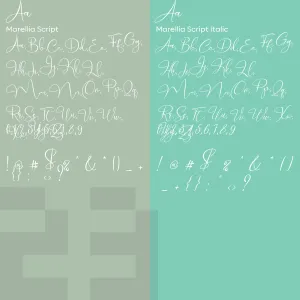 Aa
Marellia Script
Aa, Bb, Cc, Dd, Ee, Ff, Gg
Hh, Ii, Jj, Kk, Ll,
Mm, Nn, Oo, Pp, Qq
Rr, Ss, Tt, Uu, Vv, Ww,
! @ # $ % ^ & * ( ) _ +
Aa
Marellia Script Italic
Aa, Bb, Cc, Dd, Ee, Ff, Gg
Hh, Ii, Jj, Kk, Ll,
Mm, Nn, Oo, Pp, Qq
Rr, Ss, Tt, Uu, Vv, Ww, Xx
! @ # $ % ^ & * ( )
_ + { } : " < > ?